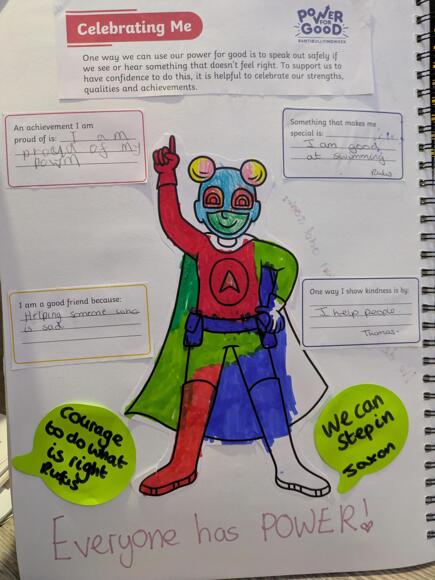 Celebrating Me
POWER
FOR
GOOD
#ANTIBULLYINGWEEK
One way we can use our power for good is to speak out safely if
we see or hear something that doesn't feel right. To support us to
have confidence to do this, it is helpful to celebrate our strengths,
qualities and achievements.
An achievement I am
proud of is: I am
proud of my
powm
Something that makes me
special is:
I am good
at swimming
Rufus
I am a good friend because:
Helping someone who
is sad.
One way I show kindness is by:
I help people
Thomas.
Courage
to do what
is right
Rufis
We can
step in
Saxon
Everyone has POWER!